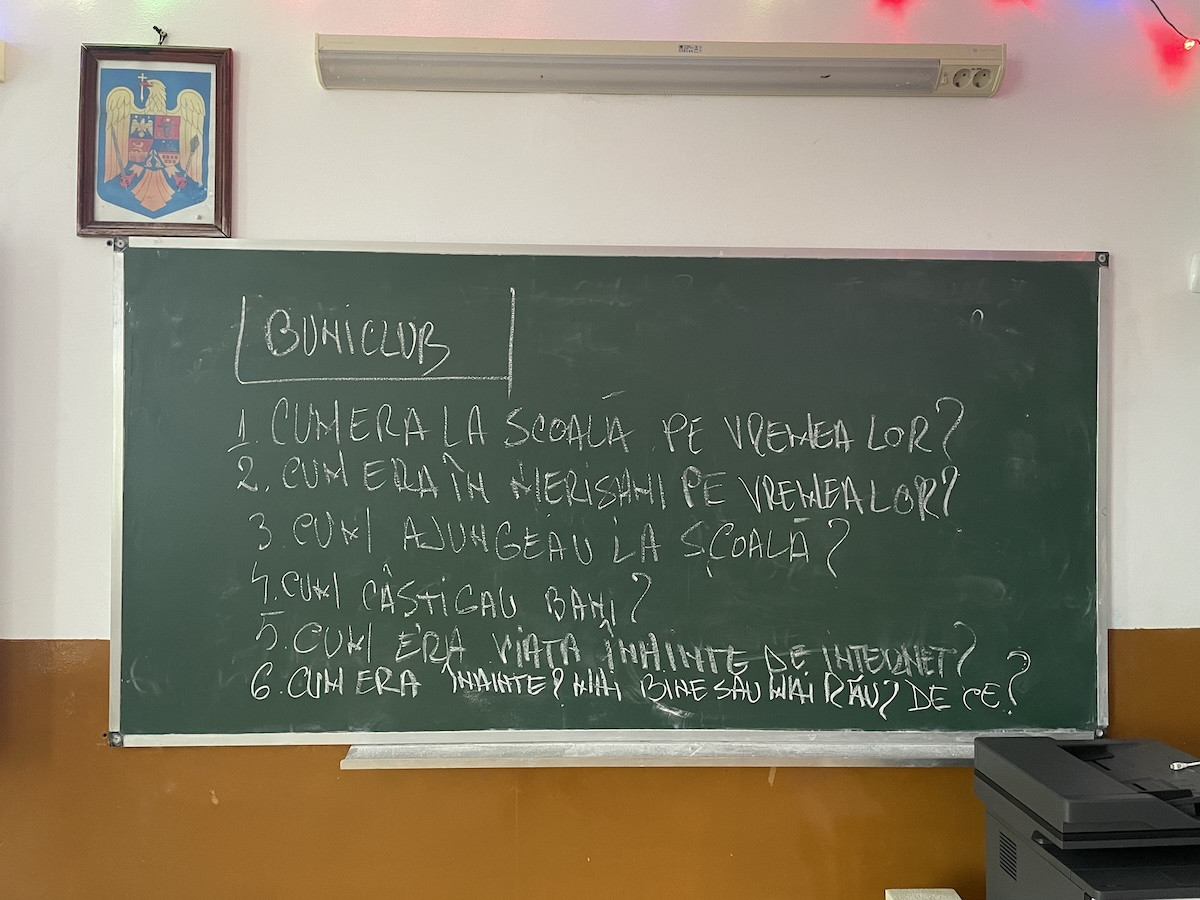 BUNICLUB
1. CUM ERA LA ȘCOALĂ PE VREMEA LOR?
2. CUM ERA ÎN MERIȘANI PE VREMEA LOR?
3. CUM AJUNGEAU LA ȘCOALĂ?
4. CUM CÂȘTIGAU BANI?
5. CUM ERA VIAȚA ÎNAINTE DE INTERNET?
6. CUM ERA ÎNAINTE? MAI BINE SAU MAI RĂU? DE CE?